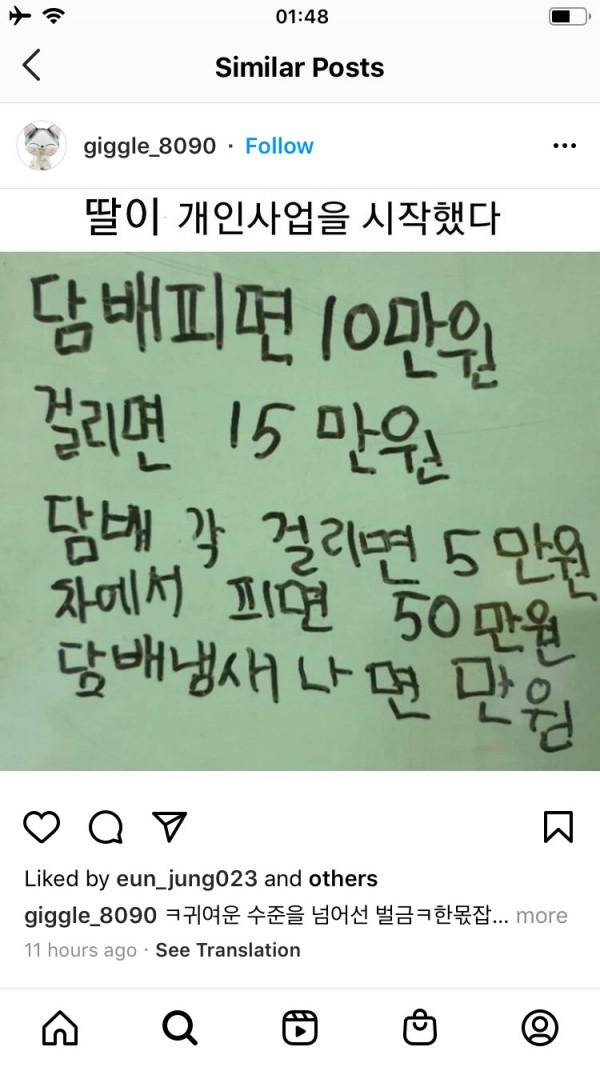 01:48
Similar Posts
giggle_8090 · Follow
딸이 개인사업을 시작했다
담배피면 10만원
걸리면 15만원
담배 각 걸리면 5만원
차에서 피면 50만원
담배냄새나면 만원
Liked by eun_jung023 and others
giggle_8090 ㅋ귀여운 수준을 넘어선 벌금ㅋ한몫잡... more
11 hours ago · See Translation